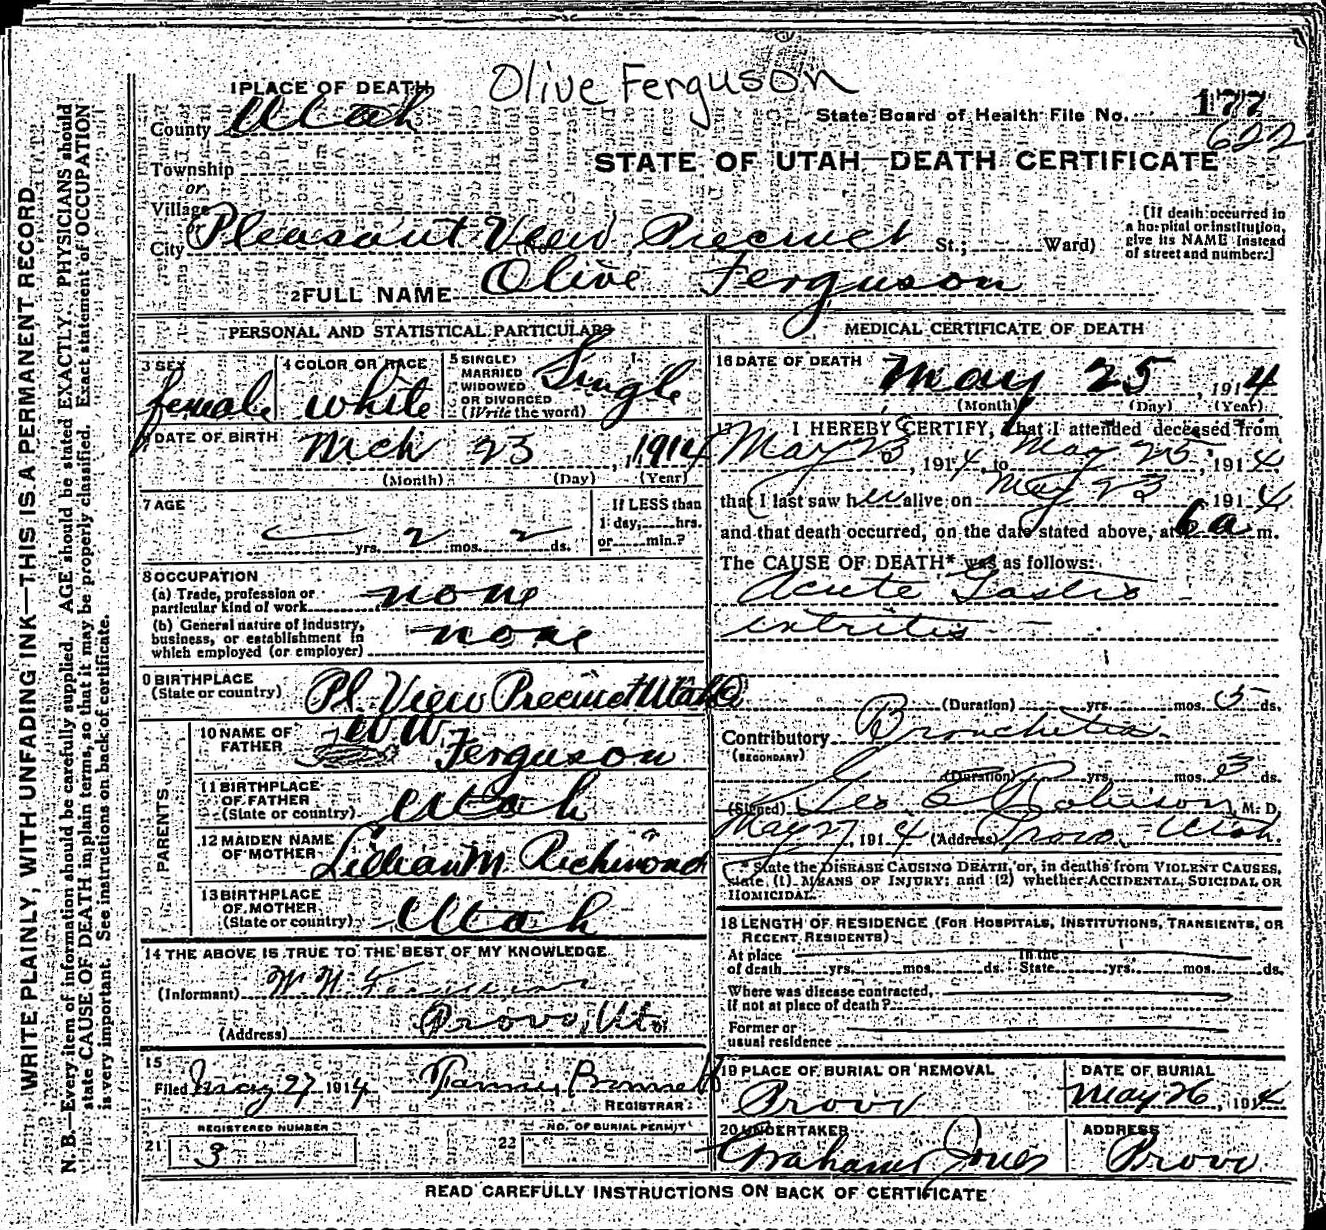 Olive Ferguson
1 PLACE OF DEATH
County Utah
State Board of Health File No. 177
622
STATE OF UTAH—DEATH CERTIFICATE
Township
or
Village
or
City Pleasant View Precinct St.; Ward)
[If death occurred in a hospital or institution, give its NAME instead of street and number.]
2 FULL NAME Olive Ferguson
PERSONAL AND STATISTICAL PARTICULARS
3 SEX female
4 COLOR OR RACE white
5 SINGLE, MARRIED WIDOWED OR DIVORCED (Write the word) Single
6 DATE OF BIRTH Mch 23, 1914
(Month) (Day) (Year)
7 AGE
yrs. 2 mos. 2 ds.
If LESS than 1 day, hrs. or min.?
8 OCCUPATION
(a) Trade, profession or particular kind of work none
(b) General nature of industry, business, or establishment in which employed (or employer) none
9 BIRTHPLACE (State or country) Pl. View Precinct Utah Co
PARENTS
10 NAME OF FATHER W W Ferguson
11 BIRTHPLACE OF FATHER (State or country) Utah
12 MAIDEN NAME OF MOTHER Lillian M. Richmond
13 BIRTHPLACE OF MOTHER (State or country) Utah
14 THE ABOVE IS TRUE TO THE BEST OF MY KNOWLEDGE
(Informant) W. W. Ferguson
(Address) Provo, Ut.
15
Filed May 27 1914
REGISTRAR
REGISTERED NUMBER
21 3
NO. OF BURIAL PERMIT
22
MEDICAL CERTIFICATE OF DEATH
16 DATE OF DEATH May 25, 1914
(Month) (Day) (Year)
17 I HEREBY CERTIFY, that I attended deceased from
May 23, 1914, to May 25, 1914
that I last saw her alive on May 23 1914
and that death occurred, on the date stated above, at 6 a m.
The CAUSE OF DEATH* was as follows:
Acute Gastro
intritis
(Duration) yrs. mos. 5 ds.
Contributory Bronchites
(SECONDARY)
(Duration) yrs. mos. 3 ds.
(Signed) Geo E Robison M. D.
May 27, 1914 (Address) Provo Utah
* State the DISEASE CAUSING DEATH, or, in deaths from VIOLENT CAUSES, state (1) MEANS OF INJURY; and (2) whether ACCIDENTAL, SUICIDAL OR HOMICIDAL.
18 LENGTH OF RESIDENCE (FOR HOSPITALS, INSTITUTIONS, TRANSIENTS, OR RECENT RESIDENTS)
At place of death yrs. mos. ds. In the State yrs. mos. ds.
Where was disease contracted, if not at place of death?
Former or usual residence
19 PLACE OF BURIAL OR REMOVAL Provo
DATE OF BURIAL May 26, 1914
20 UNDERTAKER Graham Jones
ADDRESS Provo
READ CAREFULLY INSTRUCTIONS ON BACK OF CERTIFICATE
WRITE PLAINLY, WITH UNFADING INK—THIS IS A PERMANENT RECORD
N. B.—Every item of information should be carefully supplied. AGE should be stated EXACTLY. PHYSICIANS should
state CAUSE OF DEATH in plain terms, so that it may be properly classified. Exact statement of OCCUPATION
is very important. See instructions on back of certificate.